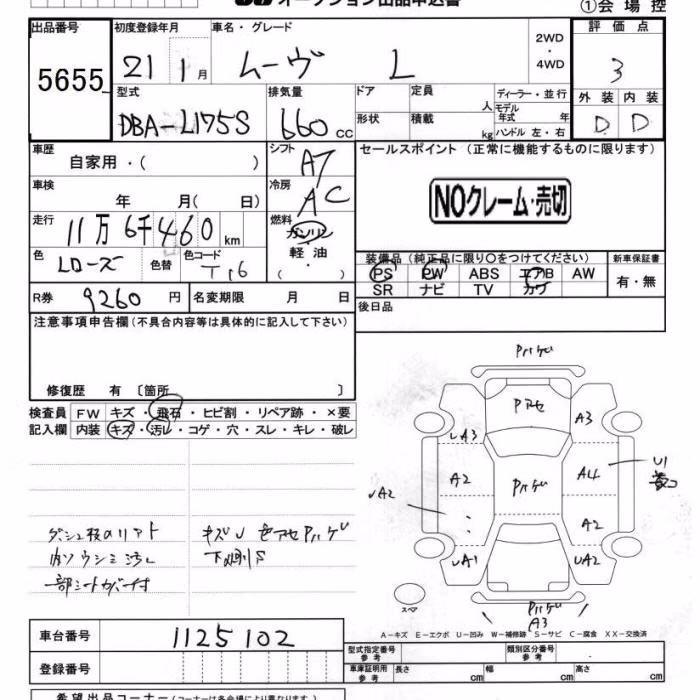 オークション出品申込書
①会場控
出品番号 初度登録年月 車名・グレード 2WD・4WD 評価点
5655 21 1月 ムーヴ L 3
型式 排気量 ドア 定員 人 ディーラー・並行 外装 内装
DBA-L175S 660 cc 形状 積載 kg モデル年式 年 ハンドル 左・右 D D
車歴 自家用・( ) シフト AT セールスポイント(正常に機能するものに限ります)
車検 年 月( 日) 冷房 AC
NOクレーム・売切
走行 11万6千460km 燃料 ガソリン 軽油 ( )
色 Lローズ 色替 色コード T16
装備品(純正品に限り○をつけてください) 新車保証書
PS PW ABS エアB AW 有・無
SR ナビ TV カワ
R券 9260円 名変期限 月 日 後日品
注意事項申告欄(不具合内容等は具体的に記入して下さい)
修復歴 有 〔箇所 〕
検査員 FW キズ・飛石・ヒビ割・リペア跡・×要
記入欄 内装 キズ・汚レ・コゲ・穴・スレ・キレ・破レ
Pハゲ
Pアセ
A3
UA3
A2
Pハゲ
A4
U1
UA2
A2
UA1
UA2
Pハゲ
A3
スペア
キズU 色アセ Pハゲ
一部シートカバー付
A-キズ E-エクボ U-凹み W-補修跡 S-サビ C-腐食 XX-交換済
車台番号 1125102
登録番号
型式指定番号 参考 類別区分番号 参考
車庫証明用 参考 長さ cm 幅 cm 高さ cm
希望出品コーナー(コーナーは各会場により異なります)